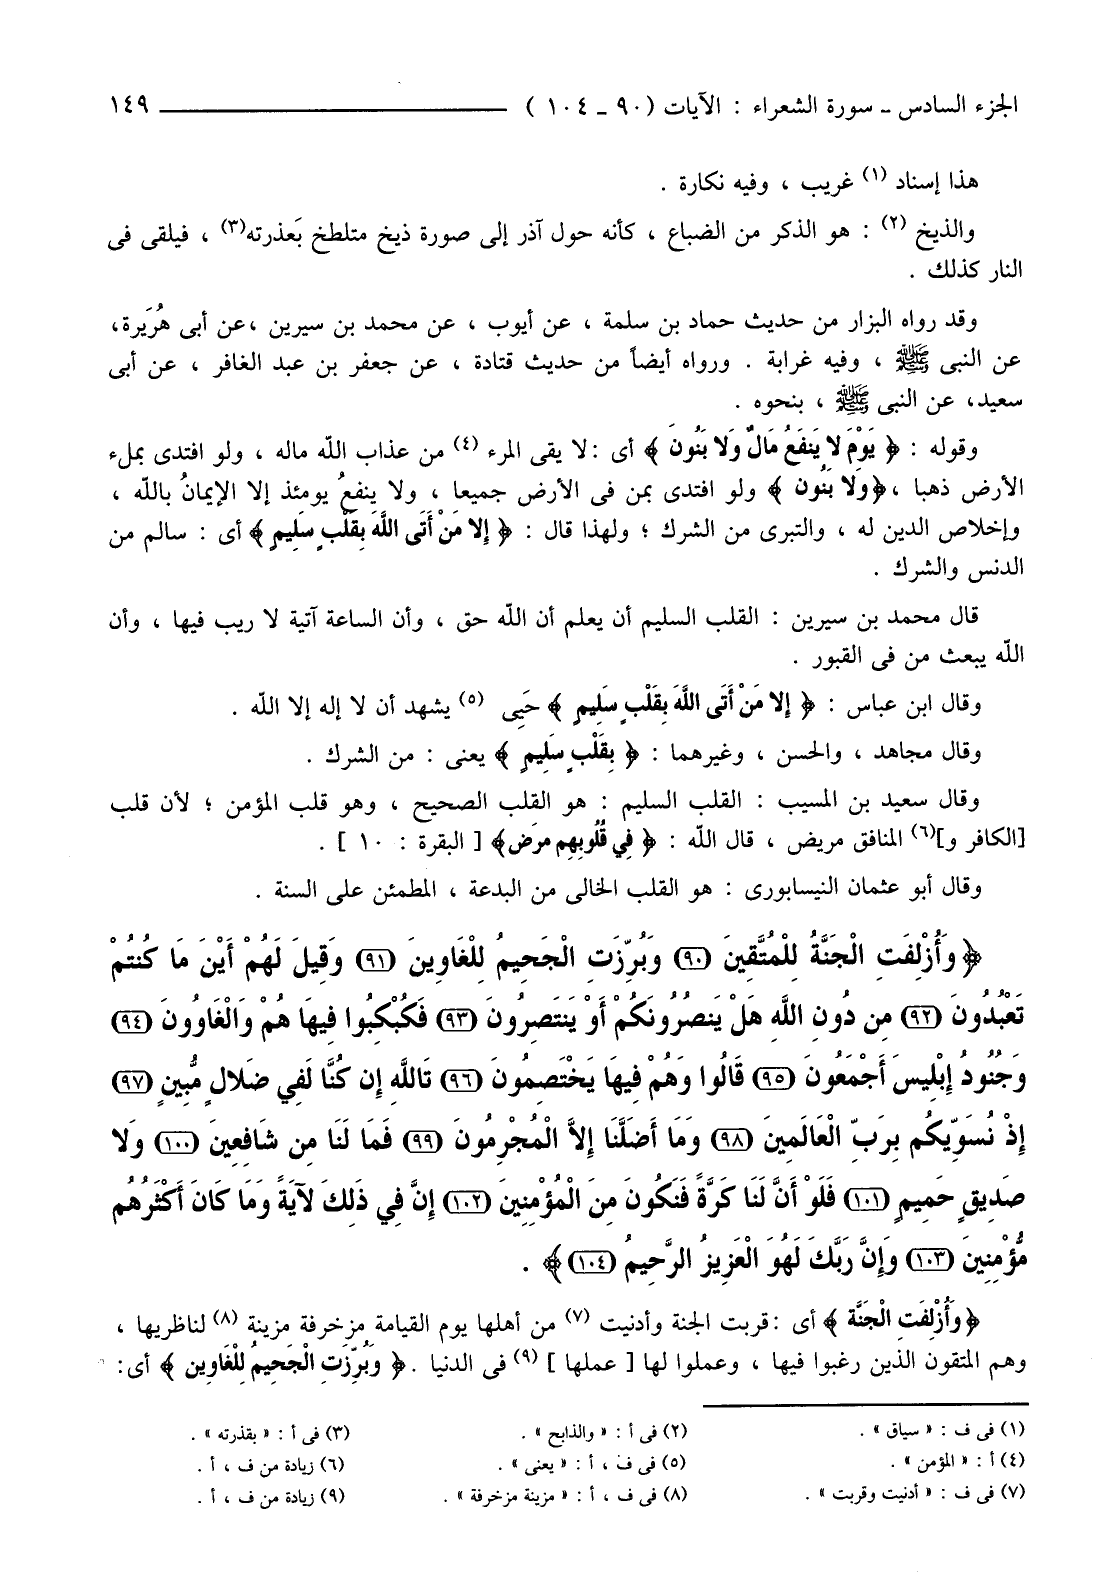 الجزء السادس ـ سورة الشعراء : الآيات (٩٠ ـ ١٠٤ ) ١٤٩
هذا إسناد (١) غريب ، وفيه نكارة .
والذيخ (٢) : هو الذكر من الضباع ، كأنه حول آذر إلى صورة ذيخ متلطخ بَعذرته(٣) ، فيلقى فى
النار كذلك .
وقد رواه البزار من حديث حماد بن سلمة ، عن أيوب ، عن محمد بن سيرين ،عن أبى هُرَيرة،
عن النبى ﷺ ، وفيه غرابة . ورواه أيضاً من حديث قتادة ، عن جعفر بن عبد الغافر ، عن أبى
سعيد، عن النبى ﷺ ، بنحوه .
وقوله : ﴿ يَوْمَ لا يَنفَعُ مَالٌ وَلا بَنُونَ ﴾ أى :لا يقى المرء (٤) من عذاب الله ماله ، ولو افتدى بملء
الأرض ذهبا ،﴿وَلا بَنُون ﴾ ولو افتدى بمن فى الأرض جميعا ، ولا ينفعُ يومئذ إلا الإيمانُ بالله ،
وإخلاص الدين له ، والتبرى من الشرك ؛ ولهذا قال : ﴿ إِلا مَنْ أَتَى اللَّهَ بِقَلْبٍ سَلِيمٍ ﴾ أى : سالم من
الدنس والشرك .
قال محمد بن سيرين : القلب السليم أن يعلم أن الله حق ، وأن الساعة آتية لا ريب فيها ، وأن
الله يبعث من فى القبور .
وقال ابن عباس : ﴿ إِلا مَنْ أَتَى اللَّهَ بِقَلْبٍ سَلِيمٍ ﴾ حَيِى (٥) يشهد أن لا إله إلا الله .
وقال مجاهد ، والحسن ، وغيرهما : ﴿ بِقَلْبٍ سَلِيمٍ ﴾ يعنى : من الشرك .
وقال سعيد بن المسيب : القلب السليم : هو القلب الصحيح ، وهو قلب المؤمن ؛ لأن قلب
[الكافر و](٦) المنافق مريض ، قال الله : ﴿ فِي قُلُوبِهِم مرَض﴾ [ البقرة : ١٠ ] .
وقال أبو عثمان النيسابورى : هو القلب الخالى من البدعة ، المطمئن على السنة .
﴿وَأُزْلِفَتِ الْجَنَّةُ لِلْمُتَّقِينَ (٩٠) وَبُرِّزَتِ الْجَحِيمُ لِلْغَاوِينَ (٩١) وَقِيلَ لَهُمْ أَيْنَ مَا كُنتُمْ
تَعْبُدُونَ (٩٢) مِن دُونِ اللَّهِ هَلْ يَنصُرُونَكُمْ أَوْ يَنتَصِرُونَ (٩٣) فَكُبْكِبُوا فِيهَا هُمْ وَالْغَاوُونَ (٩٤)
وَجُنُودُ إِبْلِيسَ أَجْمَعُونَ (٩٥) قَالُوا وَهُمْ فِيهَا يَخْتَصِمُونَ (٩٦) تَاللَّهِ إِن كُنَّا لَفِي ضَلالٍ مُّبِينٍ (٩٧)
إِذْ نُسَوِّيكُم بِرَبِّ الْعَالَمِينَ (٩٨) وَمَا أَضَلَّنَا إِلاَّ الْمُجْرِمُونَ (٩٩) فَمَا لَنَا مِن شَافِعِينَ (١٠٠) وَلا
صَدِيقٍ حَمِيمٍ (١٠١) فَلَوْ أَنَّ لَنَا كَرَّةً فَنَكُونَ مِنَ الْمُؤْمِنِينَ (١٠٢) إِنَّ فِي ذَلِكَ لآيَةً وَمَا كَانَ أَكْثَرُهُم
مُّؤْمِنِينَ (١٠٣) وَإِنَّ رَبَّكَ لَهُوَ الْعَزِيزُ الرَّحِيمُ (١٠٤)﴾ .
﴿وَأُزْلِفَتِ الْجَنَّة ﴾ أى :قربت الجنة وأدنيت (٧) من أهلها يوم القيامة مزخرفة مزينة (٨) لناظريها ،
وهم المتقون الذين رغبوا فيها ، وعملوا لها [ عملها ] (٩) فى الدنيا .﴿ وَبُرِّزَتِ الْجَحِيمُ لِلْغَاوِين ﴾ أى:
(١) فى ف : « سياق » . (٢) فى أ : « والذابح » . (٣) فى أ : « بقذرته » .
(٤) أ : « المؤمن » . (٥) فى ف ، أ : « يعنى » . (٦) زيادة من ف ، أ .
(٧) فى ف : « أدنيت وقربت » . (٨) فى ف ، أ : « مزينة مزخرفة » . (٩) زيادة من ف ، أ .